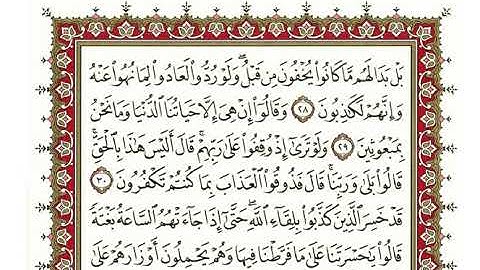 بَلۡ بَدَا لَهُم مَّا كَانُواْ يُخۡفُونَ مِن قَبۡلُۖ وَلَوۡ رُدُّواْ لَعَادُواْ لِمَا نُهُواْ عَنۡهُ
وَإِنَّهُمۡ لَكَٰذِبُونَ ٢٨ وَقَالُوٓاْ إِنۡ هِيَ إِلَّا حَيَاتُنَا ٱلدُّنۡيَا وَمَا نَحۡنُ
بِمَبۡعُوثِينَ ٢٩ وَلَوۡ تَرَىٰٓ إِذۡ وُقِفُواْ عَلَىٰ رَبِّهِمۡۚ قَالَ أَلَيۡسَ هَٰذَا بِٱلۡحَقِّۚ
قَالُواْ بَلَىٰ وَرَبِّنَاۚ قَالَ فَذُوقُواْ ٱلۡعَذَابَ بِمَا كُنتُمۡ تَكۡفُرُونَ ٣٠
قَدۡ خَسِرَ ٱلَّذِينَ كَذَّبُواْ بِلِقَآءِ ٱللَّهِۖ حَتَّىٰٓ إِذَا جَآءَتۡهُمُ ٱلسَّاعَةُ بَغۡتَةٗ
قَالُواْ يَٰحَسۡرَتَنَا عَلَىٰ مَا فَرَّطۡنَا فِيهَا وَهُمۡ يَحۡمِلُونَ أَوۡزَارَهُمۡ عَلَىٰ